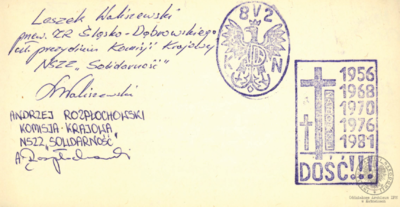 Leszek Waliszewski
przew. ZR Śląsko-Dąbrowskiego
czł. prezydium Komisji Krajowej
NSZZ „Solidarność”
LWaliszewski
ANDRZEJ ROZPŁOCHOWSKI
KOMISJA KRAJOWA
NSZZ „SOLIDARNOŚĆ”
A. Rozpłochowski
8 V 2
K N
1956
1968
1970
1976
1981
DOŚĆ!!!